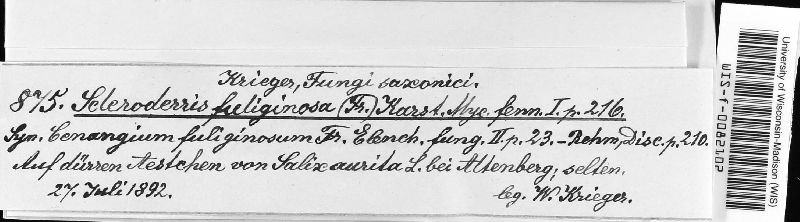 Krieger, Fungi saxonici.
875. Scleroderris fuliginosa (Fr.) Karst. Myc. fenn. I. p. 216.
Syn. Cenangium fuliginosum Fr. Elench. fung. II. p. 23. – Rehm, Disc. p. 210.
Auf dürren Aestchen von Salix aurita L. bei Altenberg; selten.
27. Juli 1892.
leg. W. Krieger.
University of Wisconsin-Madison (WIS)
WIS-f-0082102